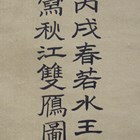 丙戌春若水王
寫秋江雙鴈圖